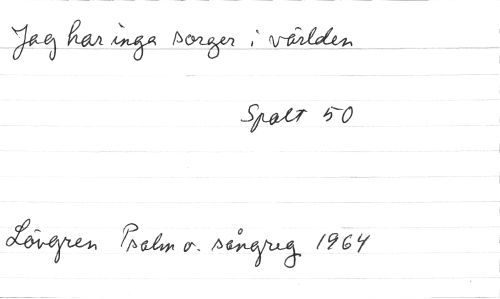 Jag har inga sorger i världen
Spalt 50
Lövgren Psalm o. sångreg 1964